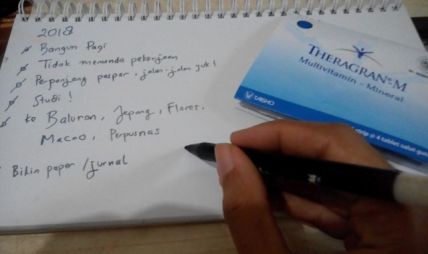 2018
Bangun Pagi
Tidak menunda pekerjaan
Perpanjang paspor, jalan-jalan yuk!
Studi!
ke Baluran, Jepang, Flores,
Macao, Perpusnas
Bikin paper/jurnal
THERAGRAN-M
Multivitamin - Mineral
TAISHO
strip @ 4 tablet salut gula